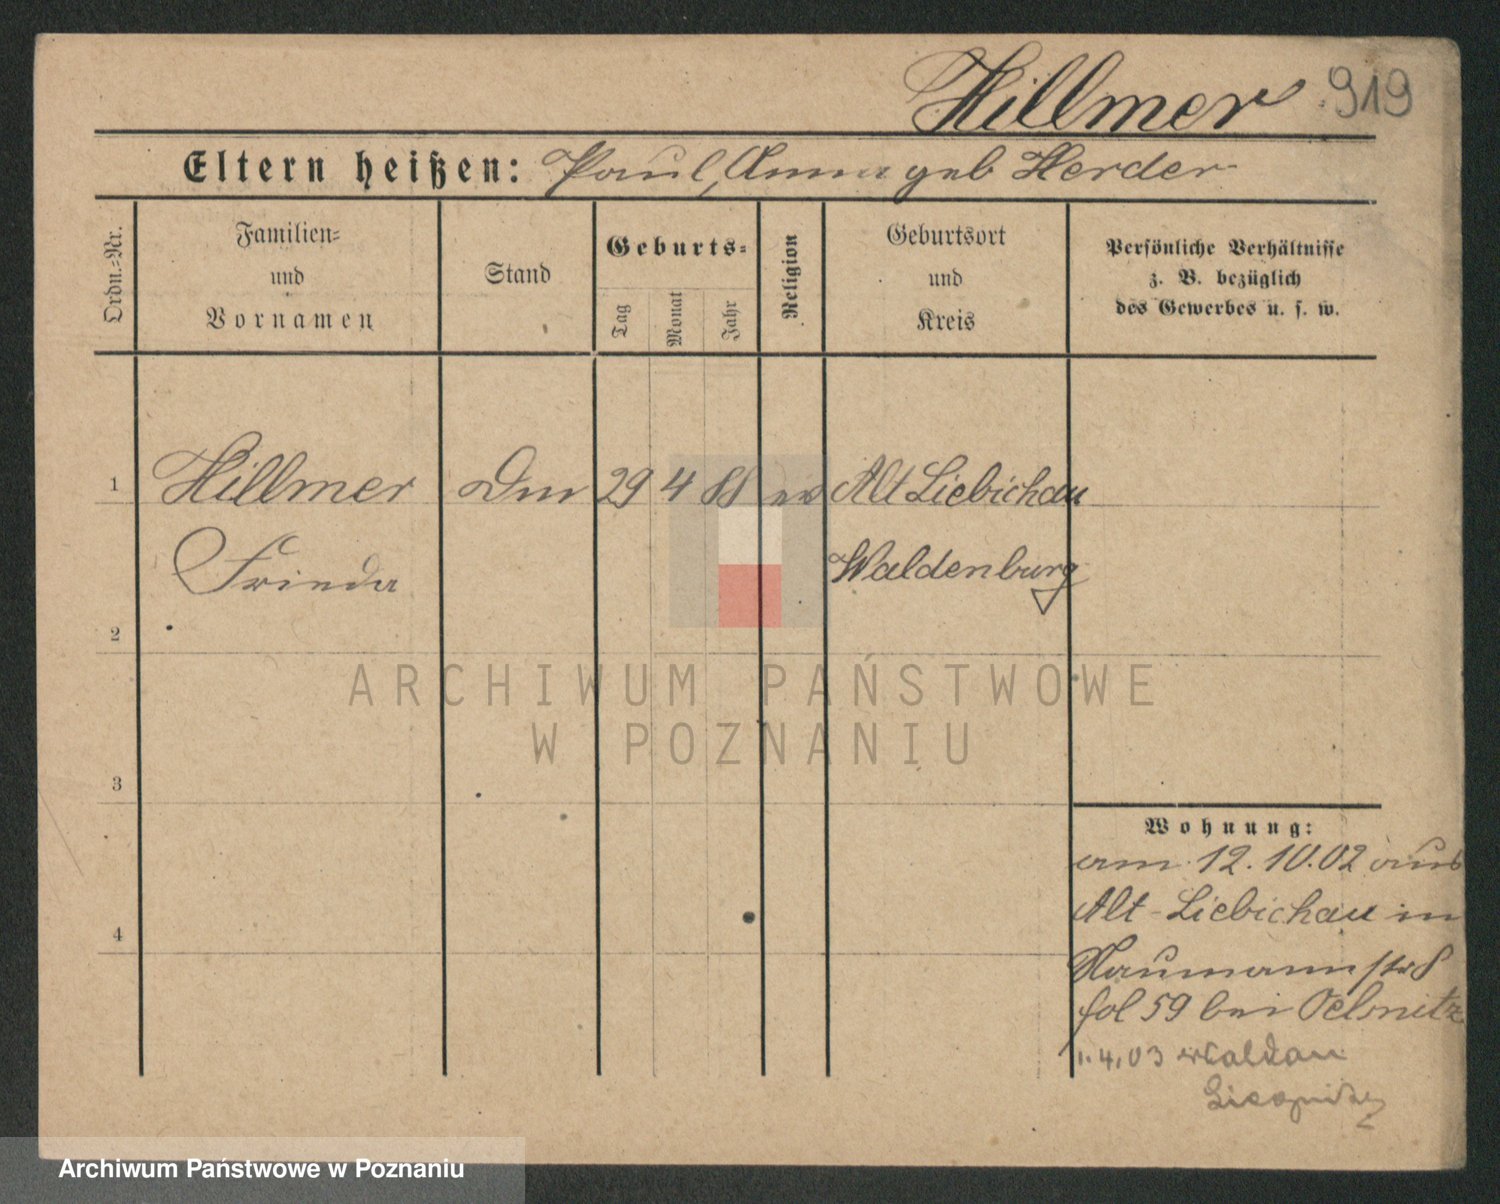 Hillmer 919
Eltern heißen: Paul, Anna geb Herder
Ordn.-Nr.
Familien-
und
Vornamen
Stand
Geburts-
Tag
Monat
Jahr
Religion
Geburtsort
und
Kreis
Persönliche Verhältnisse
z. B. bezüglich
des Gewerbes u. s. w.
1 Hillmer 29 4 88 ev Alt Liebichau
Frieda Waldenburg
2
3
4
Wohnung:
am 12.10.02 aus
Alt-Liebichau in
Naumannstr 8
fol 59 bei Oelsnitz
1.4.03 Waldau
ARCHIWUM PAŃSTWOWE
W POZNANIU
Archiwum Państwowe w Poznaniu